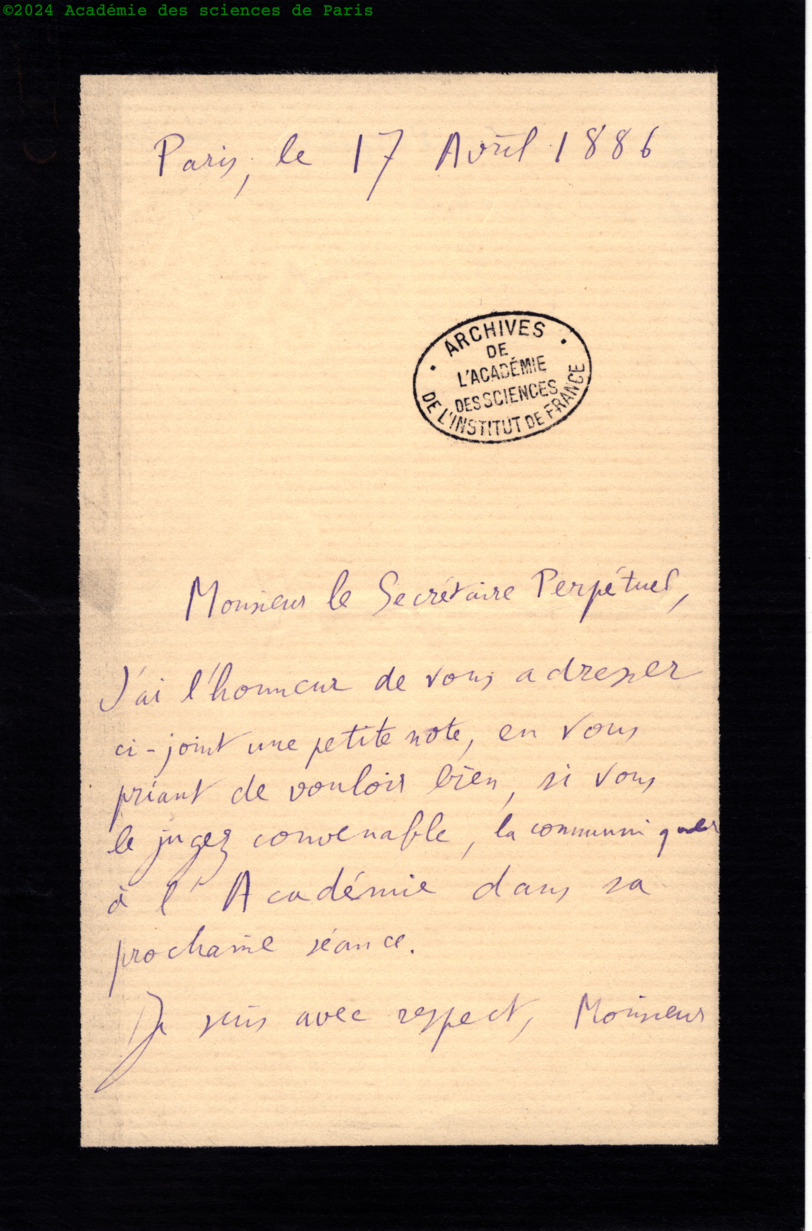 ©2024 Académie des sciences de Paris
Paris, le 17 Avril 1886
ARCHIVES
DE
L'ACADÉMIE
DES SCIENCES
DE L'INSTITUT DE FRANCE
Monsieur le Secrétaire Perpétuel,
J'ai l'honneur de vous adresser
ci-joint une petite note, en vous
priant de vouloir bien, si vous
le jugez convenable, la communiquer
à l'Académie dans sa
prochaine séance.
Je suis avec respect, Monsieur